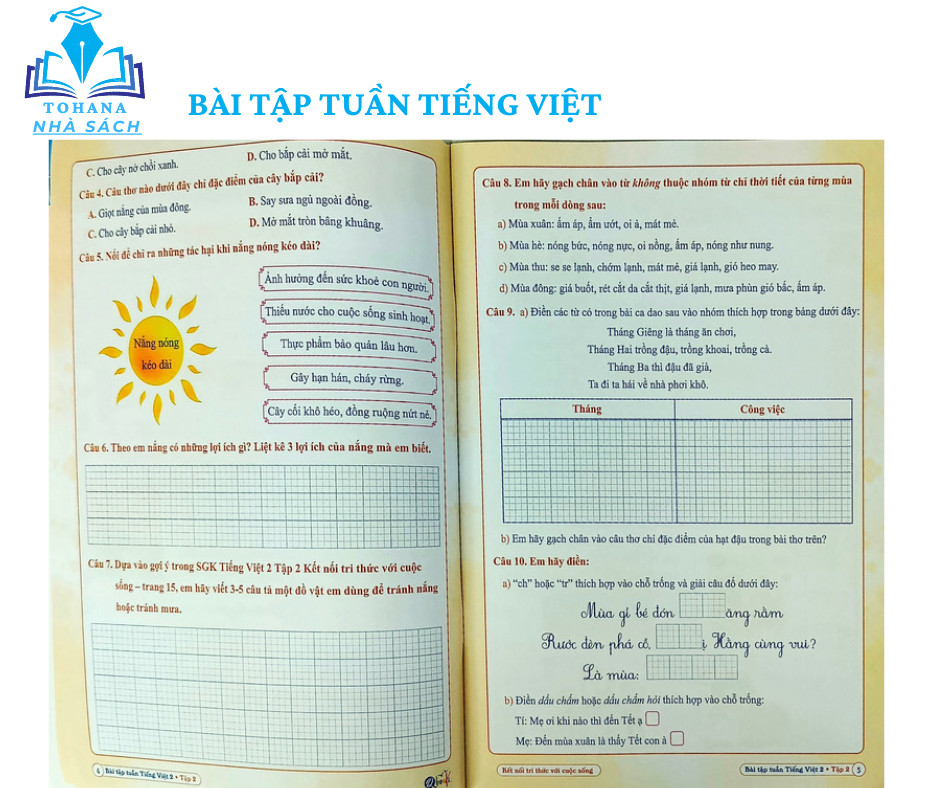 TOHANA
NHÀ SÁCH
BÀI TẬP TUẦN TIẾNG VIỆT
C. Cho cây nở chồi xanh.
D. Cho bắp cải mở mắt.
Câu 4. Câu thơ nào dưới đây chỉ đặc điểm của cây bắp cải?
A. Giọt nắng của mùa đông.
B. Say sưa ngủ ngoài đồng.
C. Cho cây bắp cải nhỏ.
D. Mở mắt tròn bâng khuâng.
Câu 5. Nối để chỉ ra những tác hại khi nắng nóng kéo dài?
Nắng nóng
kéo dài
Ảnh hưởng đến sức khoẻ con người.
Thiếu nước cho cuộc sống sinh hoạt.
Thực phẩm bảo quản lâu hơn.
Gây hạn hán, cháy rừng.
Cây cối khô héo, đồng ruộng nứt nẻ.
Câu 6. Theo em nắng có những lợi ích gì? Liệt kê 3 lợi ích của nắng mà em biết.
Câu 7. Dựa vào gợi ý trong SGK Tiếng Việt 2 Tập 2 Kết nối tri thức với cuộc
sống – trang 15, em hãy viết 3-5 câu tả một đồ vật em dùng để tránh nắng
hoặc tránh mưa.
4 Bài tập tuần Tiếng Việt 2 • Tập 2
Câu 8. Em hãy gạch chân vào từ không thuộc nhóm từ chỉ thời tiết của từng mùa
trong mỗi dòng sau:
a) Mùa xuân: ấm áp, ẩm ướt, oi ả, mát mẻ.
b) Mùa hè: nóng bức, nóng nực, oi nồng, ấm áp, nóng như nung.
c) Mùa thu: se se lạnh, chớm lạnh, mát mẻ, giá lạnh, gió heo may.
d) Mùa đông: giá buốt, rét cắt da cắt thịt, giá lạnh, mưa phùn gió bấc, ấm áp.
Câu 9. a) Điền các từ có trong bài ca dao sau vào nhóm thích hợp trong bảng dưới đây:
Tháng Giêng là tháng ăn chơi,
Tháng Hai trồng đậu, trồng khoai, trồng cà.
Tháng Ba thì đậu đã già,
Ta đi ta hái về nhà phơi khô.
Tháng
Công việc
b) Em hãy gạch chân vào câu thơ chỉ đặc điểm của hạt đậu trong bài thơ trên?
Câu 10. Em hãy điền:
a) “ch” hoặc “tr” thích hợp vào chỗ trống và giải câu đố dưới đây:
Mùa gì bé đón ăng rằm
Rước đèn phá cỗ, ị Hằng cùng vui?
Là mùa:
b) Điền dấu chấm hoặc dấu chấm hỏi thích hợp vào chỗ trống:
Tí: Mẹ ơi khi nào thì đến Tết ạ
Mẹ: Đến mùa xuân là thấy Tết con à
Kết nối tri thức với cuộc sống
Bài tập tuần Tiếng Việt 2 • Tập 2 5